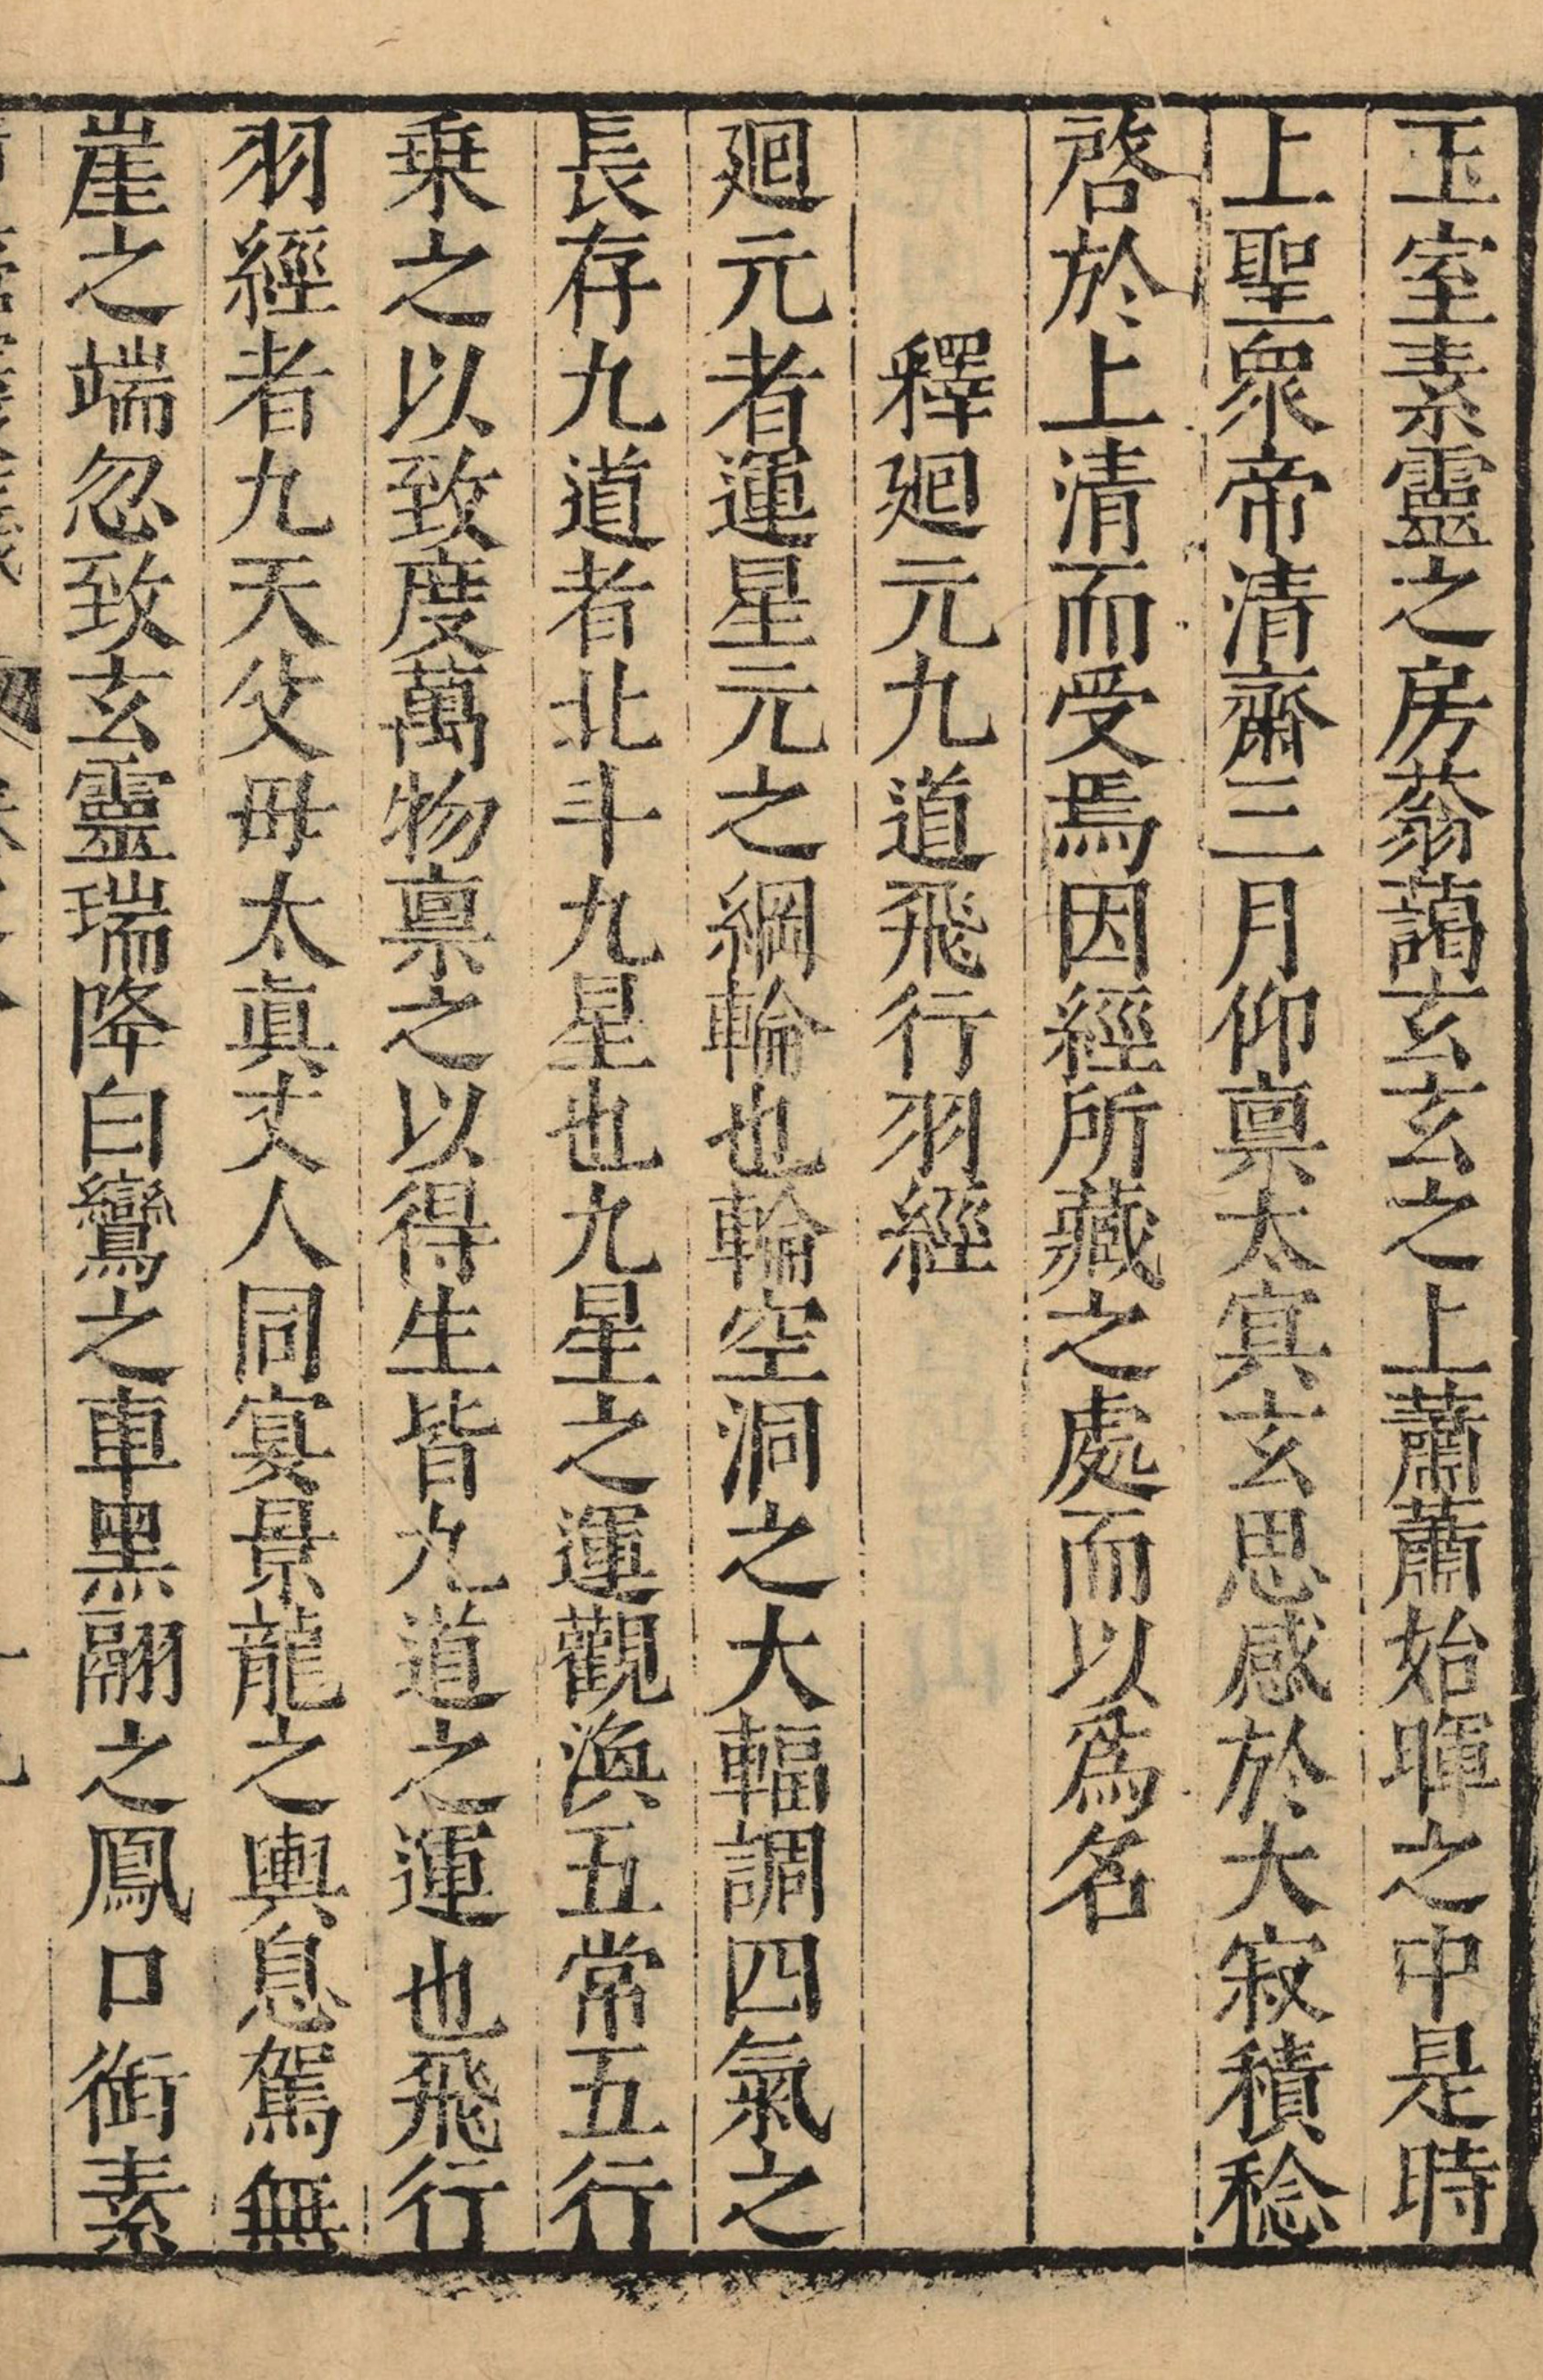 玉室素靈之房蓊藹玄玄之上蕭蕭始暉之中是時
上聖衆帝清齋三月仰禀太寞玄思感於大寂積稔
啓於上清而受焉因經所藏之處而以爲名
釋廻元九道飛行羽經
廻元者運星元之綱輪也輪空洞之大輻調四氣之
長存九道者北斗九星也九星之運觀渙五常五行
乗之以致度萬物禀之以得生皆九道之運也飛行
羽經者九天父母太眞丈人同宴景龍之輿息駕無
崖之端忽致玄靈瑞降白鸞之車黑翮之鳳口銜素